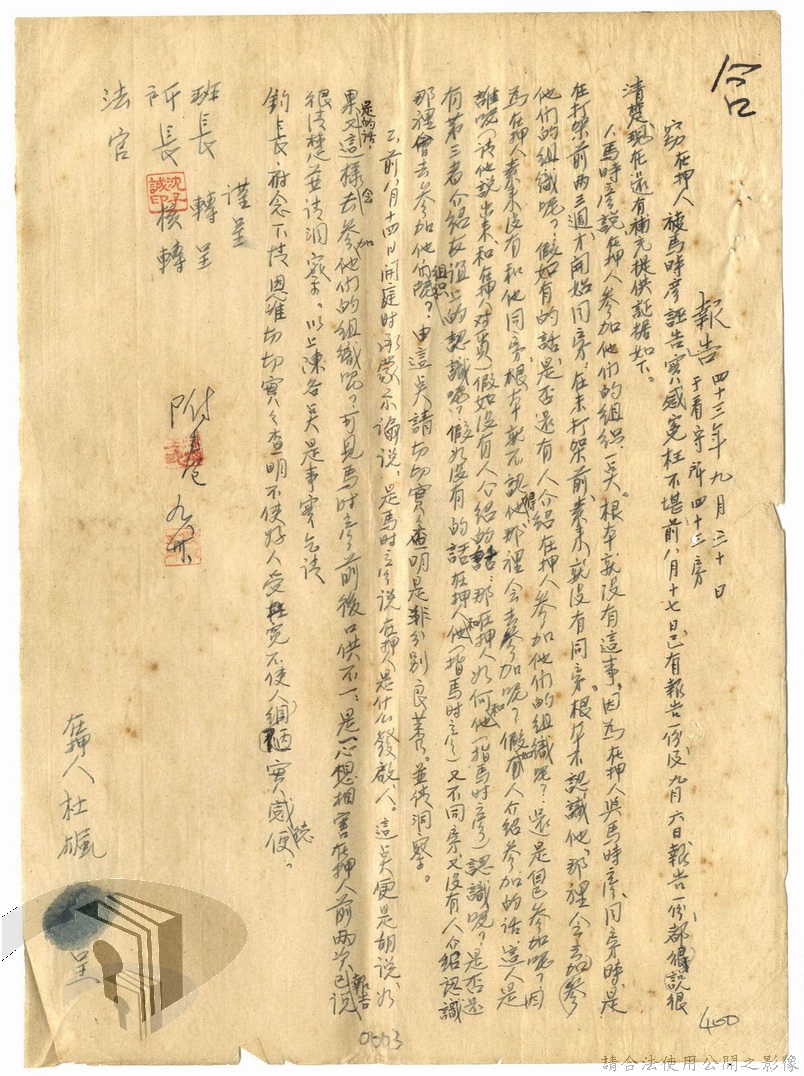 合
報告 四十三年九月三十日
于看守所四十三房
竊在押人被馬時彥誣告實感冤枉不堪前八月十七日已有報告一份及九月六日報告一份都說很
清楚現在還有補充提供証據如下。
人馬時彥說在押人參加他們的組織一吳。根本就沒有這事。因為在押人與馬時彥同房時是
在打架前兩三週才開始同房，在未打架前，素來就沒有同房。根本不認識他，那裡會去參加
他們的組織呢？假如有的話，是否還有人介紹在押人參加他們的組織呢？還是自己參加呢？因
為在押人素來沒有和他同房，根本就不認得他，那裡會去參加呢？假如有人介紹參加的話，這人是
誰呢（請他說出來，和在押人對質）假如沒有人介紹的話，那在押人如何和他（指馬時彥）認識呢？是否還
有第三者介紹友誼上的認識呢？假如沒有的話在押人和他（指馬時彥）又不同房又沒有人介紹認識
那裡會去參加他們組織呢？由這吳請切切實實查明是非分別良莠。並請洞察。
2.前八月十四日開庭时承蒙示諭說，是馬时彥说在押人是什么發啟人。這吳更是胡说，如
果是的話，又會這樣去參加他們的組織呢？可見馬时彥前後口供不一，是一心想相害在押人前兩次報告已说
很清楚並请洞察。以上陳各吳是事實乞请
鈞長府念下情恩准切切實實查明不使好人受枉冤不使人細陋實感德便。
謹呈
班長 轉呈
所長 核轉
法官
沈子誠印
附卷 九卅
在押人杜颿 呈
0553
400
請合法使用公開之影像